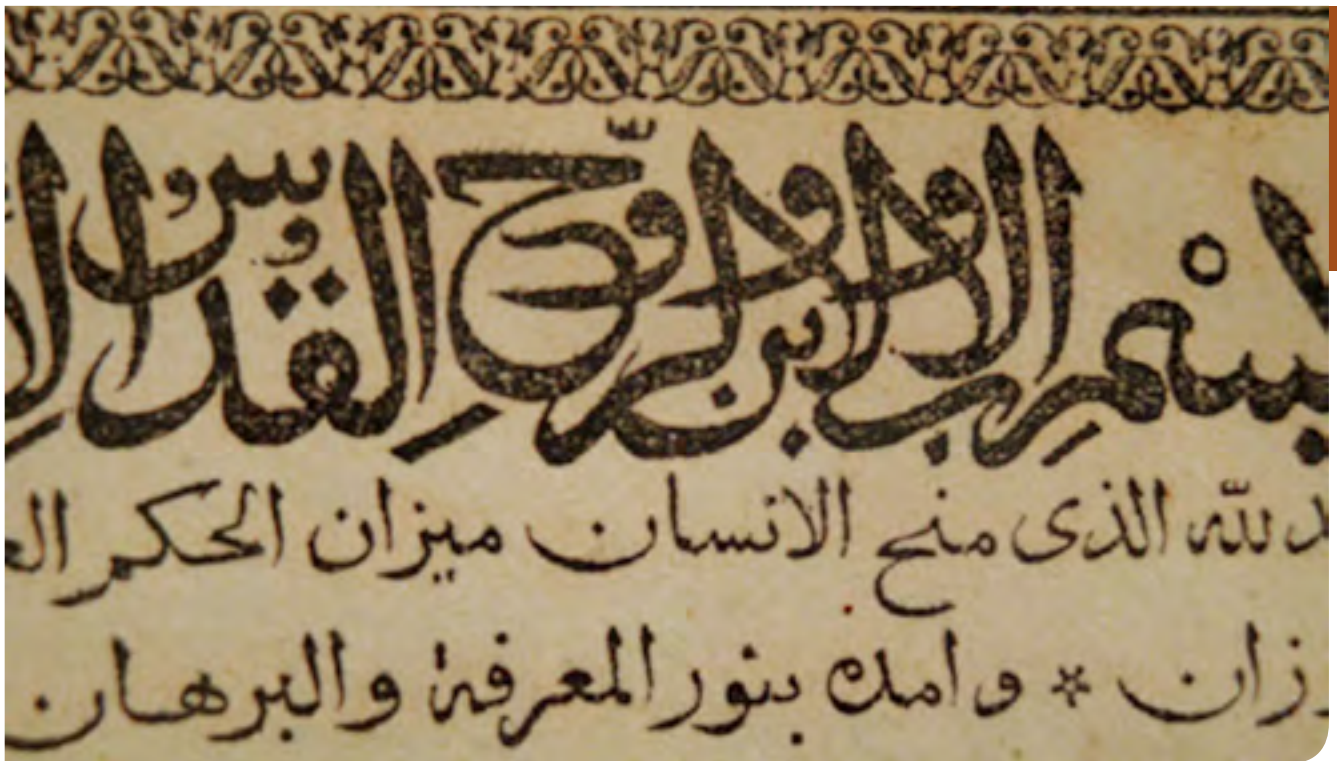 بسم الاب والابن والروح القدس
لله الذى منح الانسان ميزان الحكم
وامده بنور المعرفة والبرهان